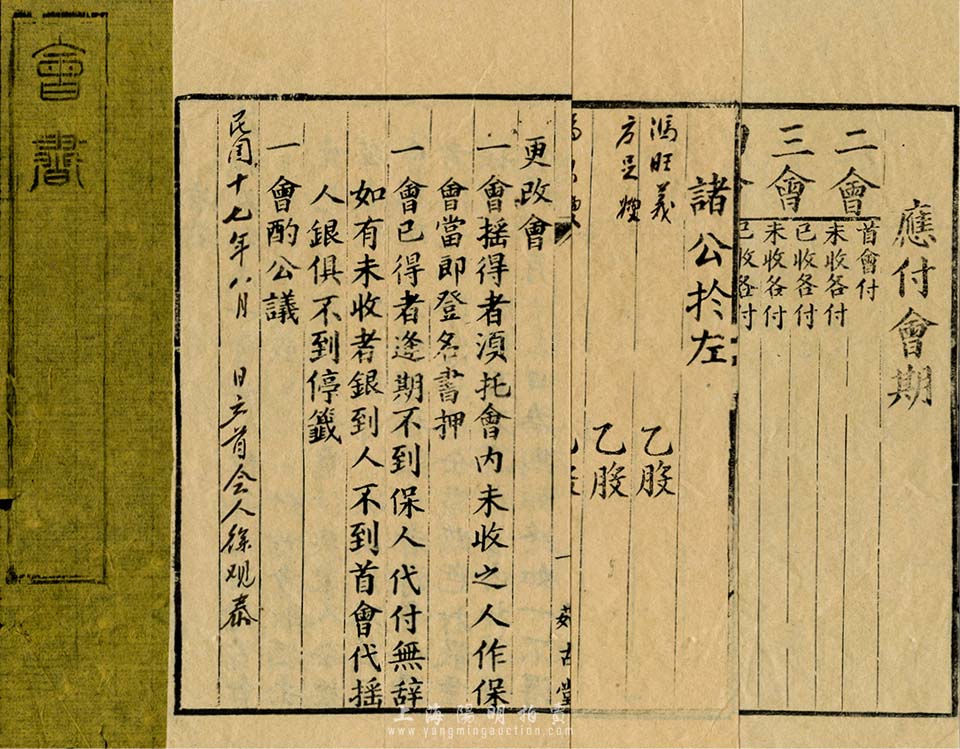 會書
應付會期
二會
首會付
未收各付
三會
已收各付
未收各付
已收各付
諸公於左
馮旺義
乙股
方足嫂
乙股
更改會
一會摇得者湏托會内未收之人作保
會當即登名書押
一會已得者逢期不到保人代付無辞
如有未收者銀到人不到首會代摇
人銀俱不到停籤
一會酌公議
民国十七年八月 日立首会人徐观泰
上海陽明拍賣
www.yangmingauction.com